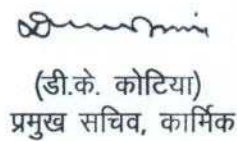 (डी.के. कोटिया)
प्रमुख सचिव, कार्मिक